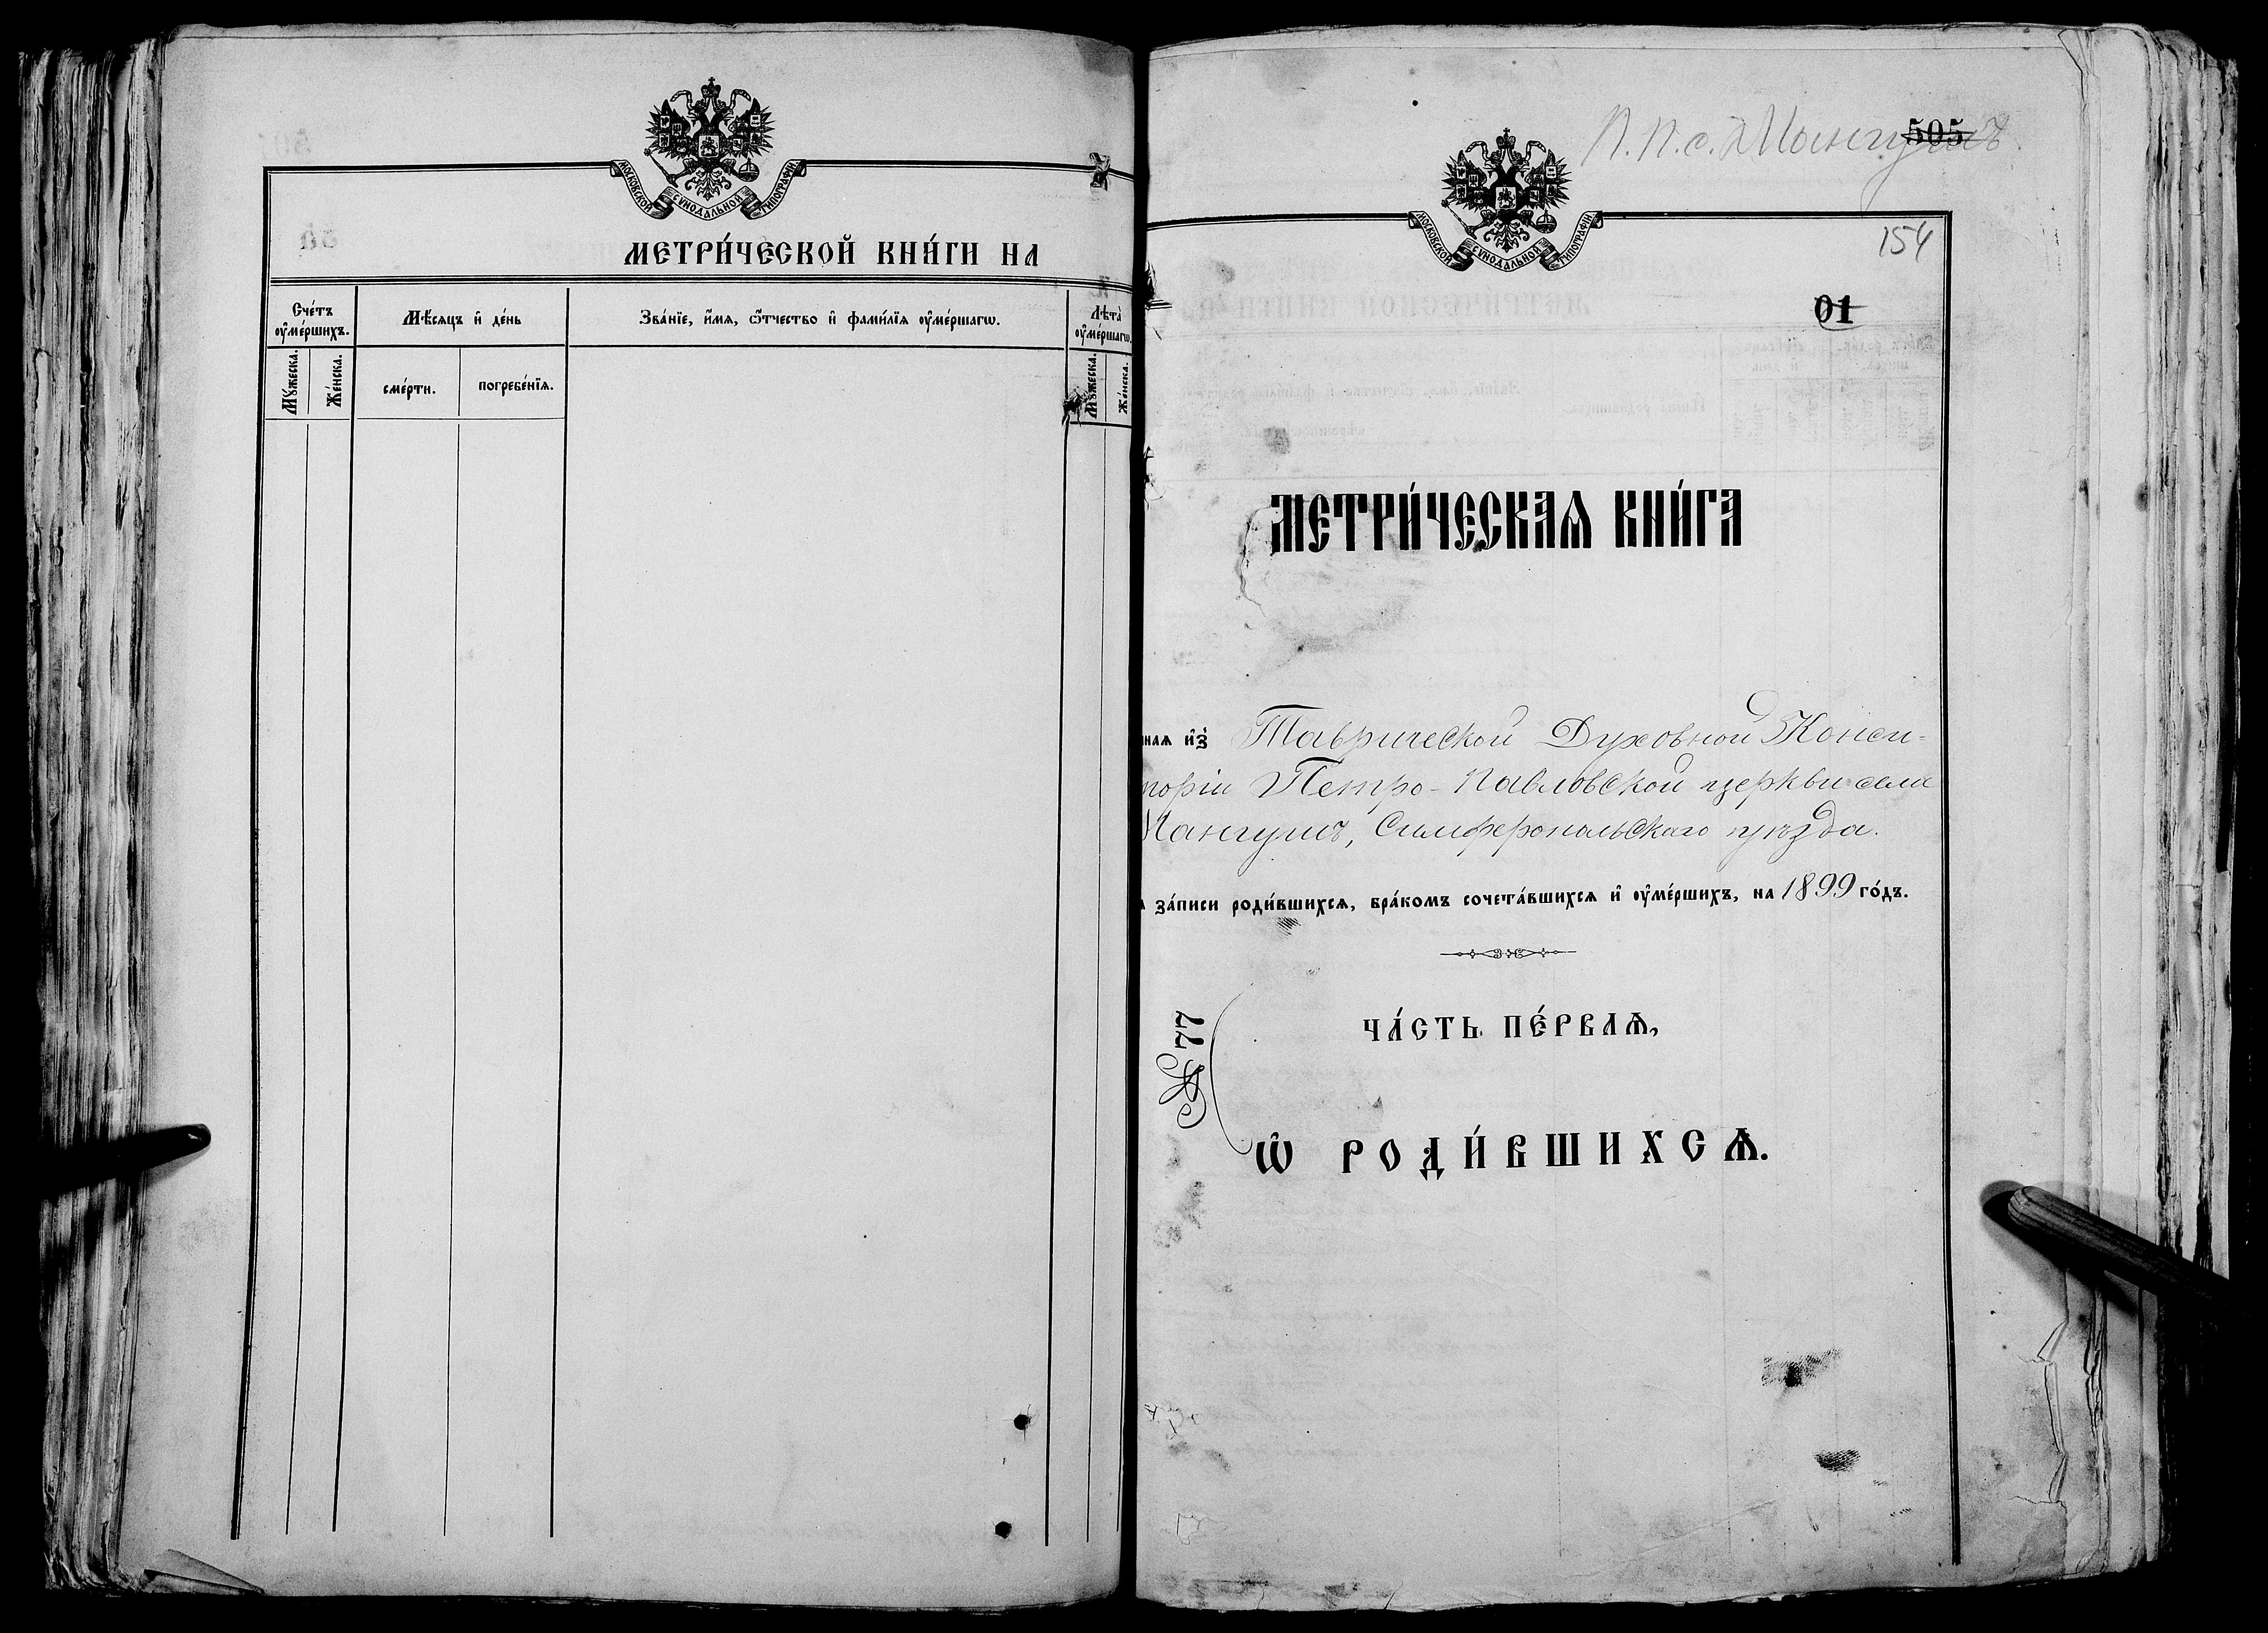 МОСКОВСКОЙ СѴНОДАЛЬНОЙ ТИПОГРАФІИ
МЕТРИ́ЧЕСКОЙ КНИ́ГИ НА
Сче́тъ ᲂу҆ме́ршихъ.
Мѣ́сяцъ и҆ де́нь
Зва́нїе, и҆́мя, ѻ҆́тчество и҆ фами́лїѧ ᲂу҆ме́ршагѡ.
Лѣ́та ᲂу҆ме́ршагѡ.
Мꙋ́жеска.
Же́нска.
сме́рти.
погребе́нїѧ.
Мꙋ́жеска.
Же́нска.
П. П. с. Мангушъ
505
МОСКОВСКОЙ СѴНОДАЛЬНОЙ ТИПОГРАФІИ
154
01
МЕТРИ́ЧЕСКАѦ КНИ́ГА
ная и҆з̾ Таврической Духовной Конси-
торіи Петро-Павловской церкви села
Мангушъ, Симферопольскаго уѣзда.
за́писи роди́вшихсѧ, бра́комъ сочета́вшихсѧ и҆ ᲂу҆ме́ршихъ, на 1899 го́дъ.
ЧА́СТЬ ПЕ́РВАѦ,
№ 77
Ѡ҆ РОДИ́ВШИХСѦ.